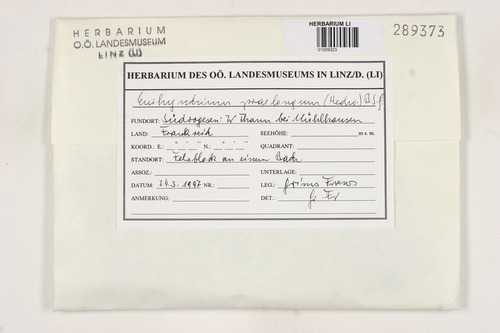 HERBARIUM
O.Ö. LANDESMUSEUM
LINZ (LI)
HERBARIUM LI
01009323
289373
HERBARIUM DES OÖ. LANDESMUSEUMS IN LINZ/D. (LI)
Eurhynchium praelongum (Hedw.) B.S.G.
FUNDORT: Südvogesen: W Thann bei Mühlhausen
LAND: Frankreich SEEHÖHE: m s. m.
KOORD.: E: ° ' " N: ° ' " QUADRANT:
STANDORT: Felsblock an einem Bach
ASSOZ.: UNTERLAGE:
DATUM: 24.3.1997 NR.: LEG.: Grims Franz
ANMERKUNG: DET.: Gr. Fr